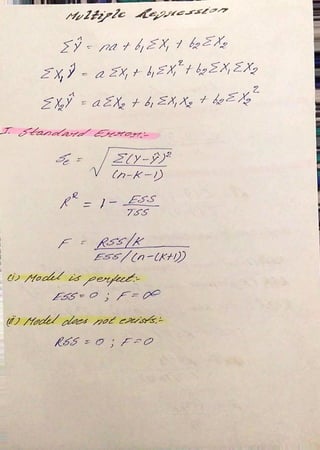 Multiple Regression
ΣŶ = na + b₁ΣX₁ + b₂ΣX₂
ΣX₁Ŷ = aΣX₁ + b₁ΣX₁² + b₂ΣX₁ΣX₂
ΣX₂Ŷ = aΣX₂ + b₁ΣX₁X₂ + b₂ΣX₂²
I. Standard Error:-
Se = √ Σ(Y-Ŷ)² / (n-K-1)
R² = 1 - ESS / TSS
F = RSS/K / ESS/(n-(K+1))
(i) Model is perfect:-
ESS = 0 ; F = ∞
(ii) Model does not exists:-
RSS = 0 ; F = 0